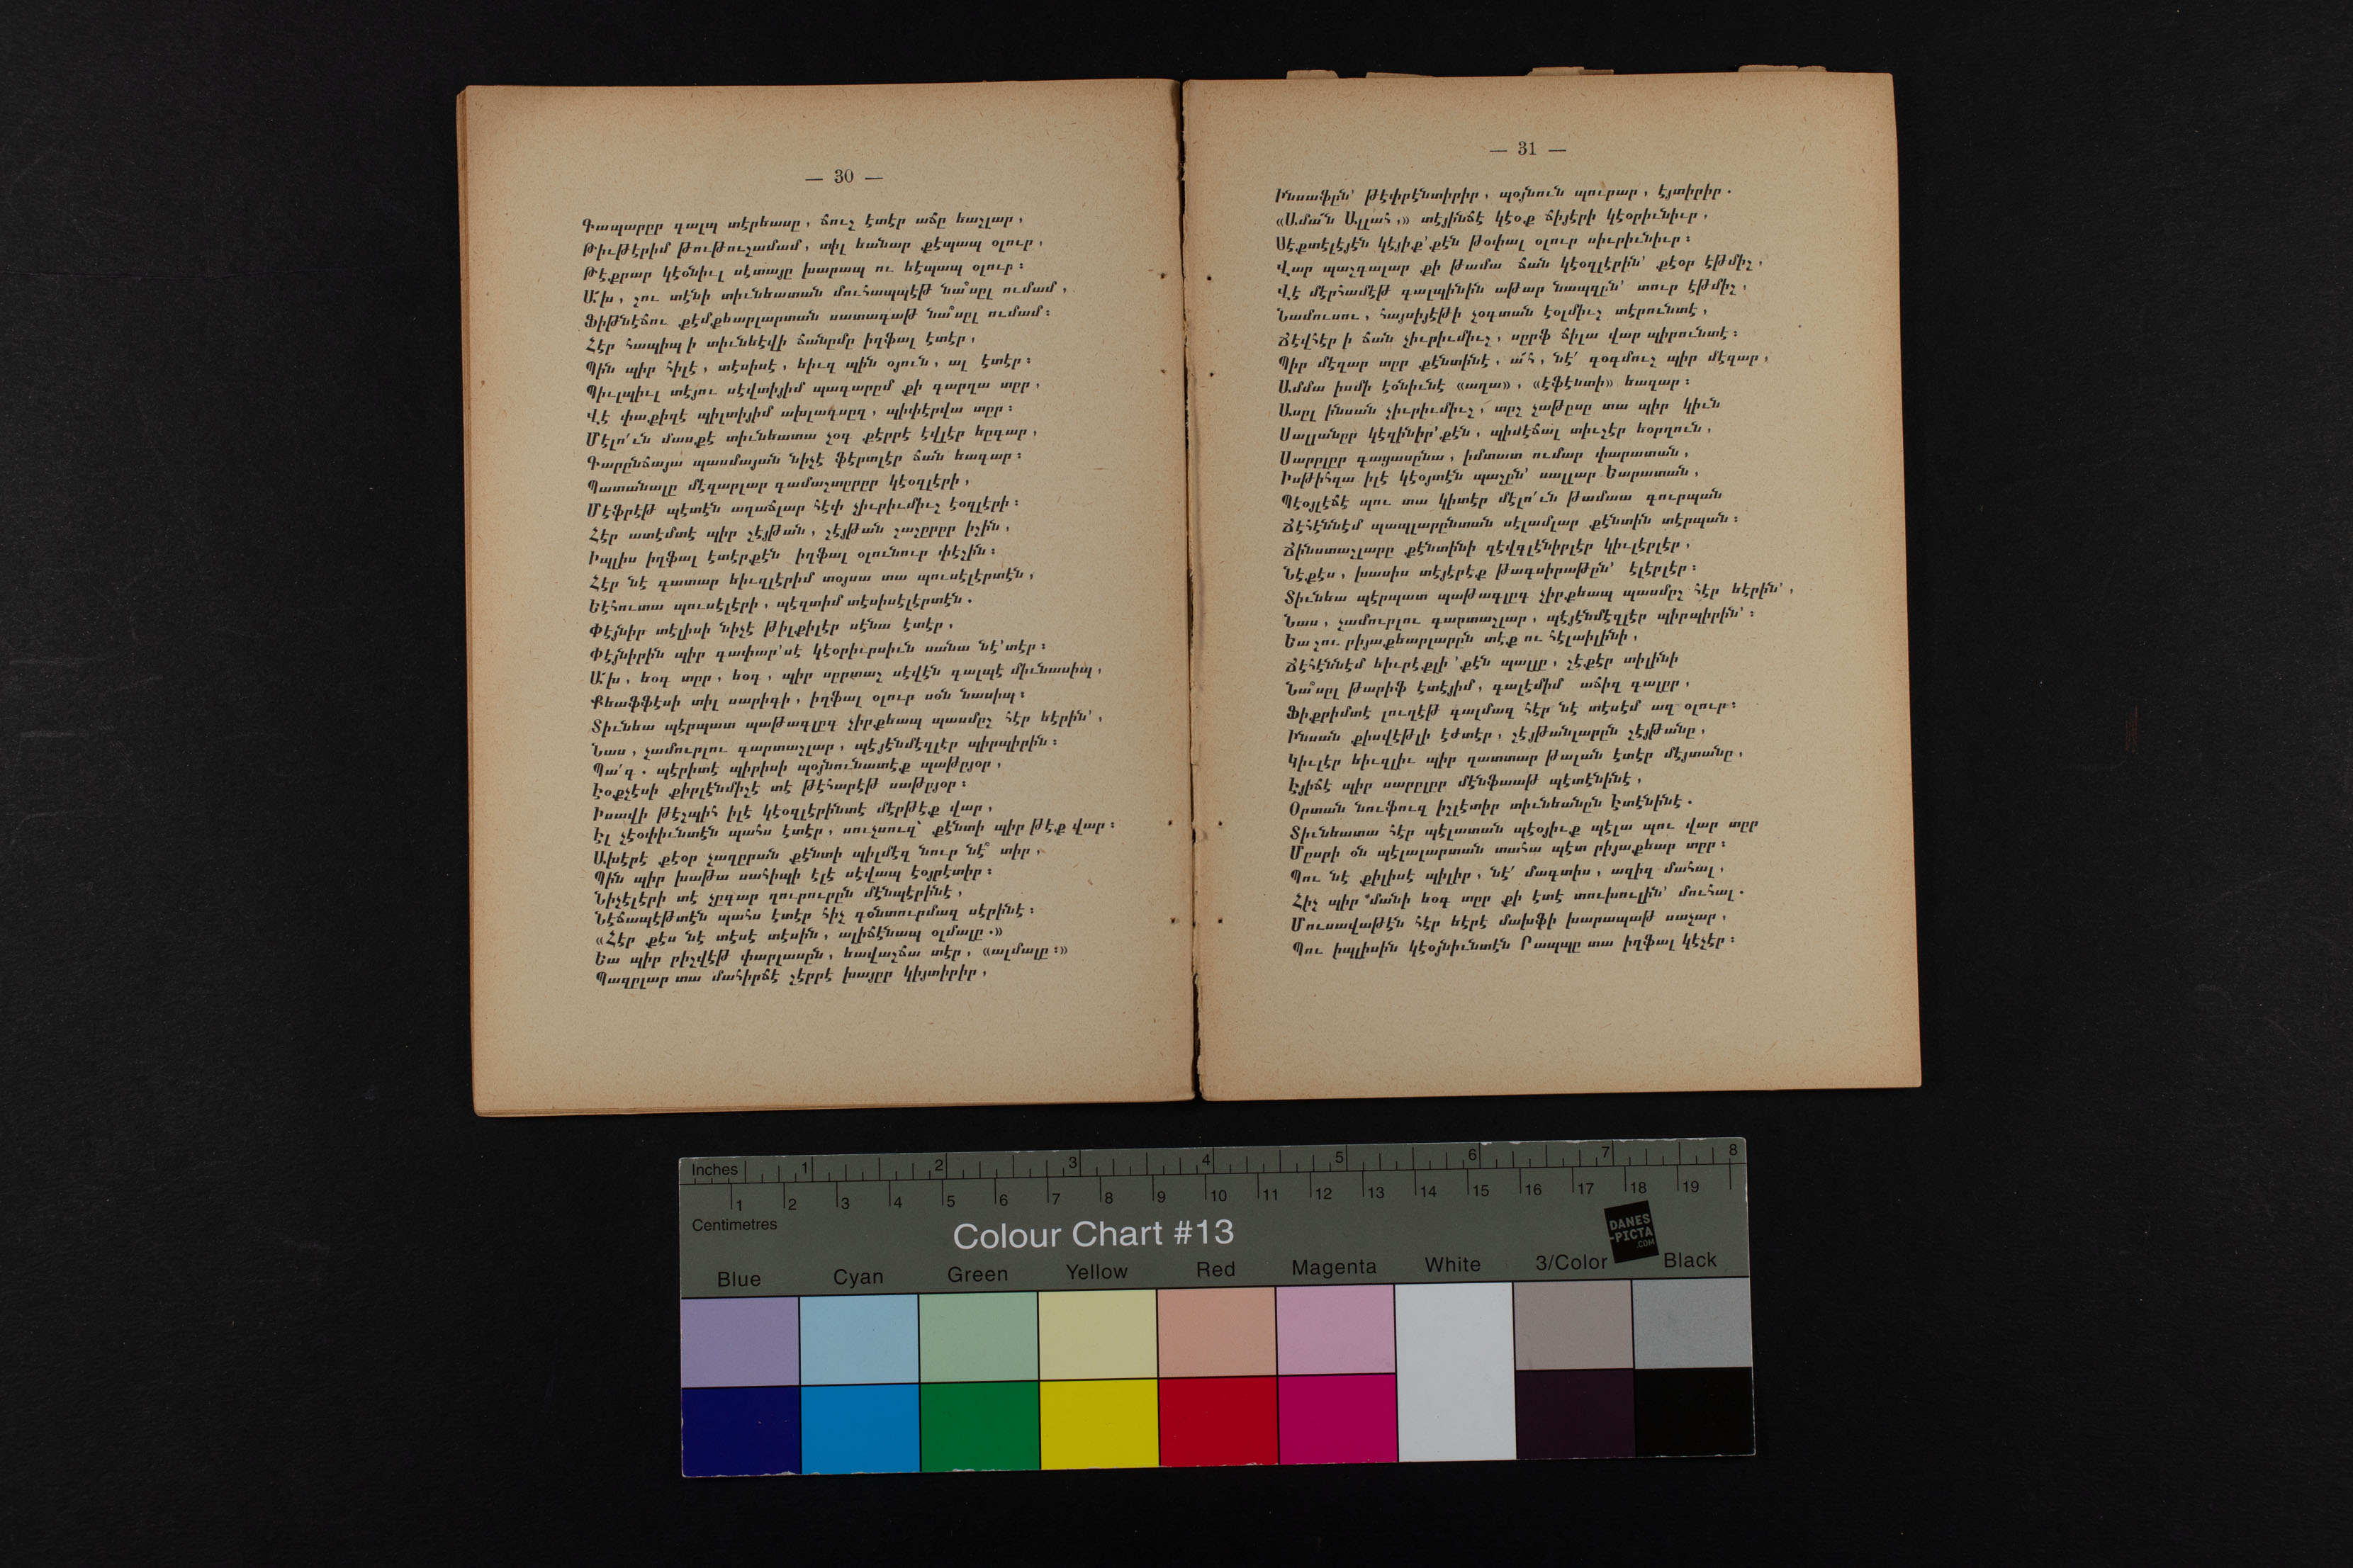 — 30 —
Գապարըր գալպ տէրեասը, ճուշ էտէր աճը եաշլար,
Թիւթէրիմ թութուշամամ, տիլ եանար քէպապ օլուր,
Թէքրար կէօնիւլ սէտայը խարապ ու եէպապ օլուր։
Ա՜խ, շու տէնի տիւնեատան մուհապպէթ նա՞սըլ ումամ,
Ֆիթնէճու քէմքեարլարտան սատագաթ նա՞սըլ ումամ։
Հէր հապիպ ի տիւնեէվի ճանըմը իղֆալ էտէր,
Պին պիր հիլէ, տէսիսէ, եիւզ պին օյուն, ալ էտէր։
Պիւլպիւլ տէյու սէվտիյիմ պագարըմ քի գարղա տըր,
Վէ փաքիզէ պիլտիյիմ ախլագսըզ, պիփէրվա տըր։
Մէլո՛ւն մասքէ տիւնեատա չօգ քէրրէ էվլէր եըգար,
Գարընճայա պասմայան նիչէ ֆէրտլէր ճան եագար։
Պատանալը մէզարլար գամաշտըրըր կէօզլէրի,
Մէֆրէթ պէտէն աղաճլար հէփ չիւրիւմիւշ էօզլէրի։
Հէր ատէմտէ պիր շէյթան, շէյթան շաշըրըր իչին,
Իպլիս իղֆալ էտէրքէն իղֆալ օլունուր փէշին։
Հէր նէ գատար եիւզլէրիմ տօյսա տա պուսէլէրտէն,
Եէհուտա պուսէլէրի, պէզտիմ տէսիսէլէրտէն.
Փէյնիր տէլիսի նիչէ թիլքիլէր սէնա էտէր,
Փէյնիրին պիր գափար՚սէ կէօրիւրսիւն սանա նէ՚տէր։
Ա՜խ, եօգ տըր, եօգ, պիր սըրտաշ սէվէն գալպէ միւնասիպ,
Քեաֆֆէսի տիլ սարիգի, իղֆալ օլուր սօն նասիպ։
Տիւնեա պէրպատ պաթագլըգ չիրքեապ պասմըշ հէր եէրին՚,
Նաս, չամուրլու գարտաշլար, պէյէնմէզլէր պիրպիրին։
Պա՛գ. պէրիտէ պիրիսի պօյնունատէք պաթըյօր,
Էօքչէսի քիրլէնմիշէ տէ թէհարէթ սաթըյօր։
Իսավի թէշպիհ իլէ կէօզլէրինտէ մէրթէք վար,
Էլ չէօփիւնտէն պահս էտէր, սուչսուզ՝ քէնտի պիր թէք վար։
Ախէրէ քէօր չաղըրան քէնտի պիլմէզ նուր նէ՞ տիր,
Պին պիր խաթա սահիպի էլէ սէվապ էօյրէտիր։
Նիչէլէրի տէ չըգար ղուրուրըն մէնպէրինէ,
Նէճապէթտէն պահս էտէր հիչ գօնտուրմազ սէրինէ։
«Հէր քէս նէ տէսէ տէսին, ալիճէնապ օլմալը.»
Եա պիր րիշվէթ փարլասըն, եավաշճա տէր, «ալմալը։»
Պազըլար տա մահիրճէ չէրրէ խայըր կիյտիրիր,
— 31 —
Ինսաֆըն՚ թէփրէնտիրիր, պօյնուն պուրար, էյտիրիր.
«Ամա՜ն Ալլահ,» տէյինճէ կէօք ճիյէրի կէօրիւնիւր,
Սէքտէլէյէն կէյիք՚քէն թօփալ օլուր սիւրիւնիւր։
Վար պաշգալար քի թամա ճան կէօզլէրին՚ քէօր էթմիշ,
Վէ մէրհամէթ գալպինին աթար նապզըն՚ տուր էթմիշ,
Նամուսու, հայսիյէթի չօգտան էօլմիւշ տէրունտէ,
Ճէվհէր ի ճան չիւրիւմիւշ, սըրֆ ճիլա վար պիրունտէ։
Պիր մէզար տըր քէնտինէ, ա՜հ, նէ՛ գօգմուշ պիր մէզար,
Ամմա իսմի էօնիւնէ «աղա», «էֆէնտի» եազար։
Ասըլ ինսան չիւրիւմիւշ, տըշ չաթըսը տա պիր կիւն
Սալլանըր կէզինիր՚քէն, պիմէճալ տիւշէր եօրղուն,
Սարըլըր գայասընա, իմտատ ումար փարատան,
Իսթիհզա իլէ կէօյտէն պաշըն՚ սալլար Եարատան,
Պէօյլէճէ պու տա կիտէր մէլո՛ւն թամաա գուրպան
Ճէհէննէմ պապլարընտան սէլամլար քէնտին տէրպան։
Ճինստաշլարը քէնտինի զէվգլէնիրլէր կիւլէրլէր,
Նէքէս, խասիս տէյէրէք թագսիրաթըն՚ էլէրլէր։
Տիւնեա պէրպատ պաթագլըգ չիրքեապ պասմըշ հէր եէրին՚,
Նաս, չամուրլու գարտաշլար, պէյէնմէզլէր պիրպիրին՚։
Եա շու րիյաքեարլարըն տէք ու հէլաիլինի,
Ճէհէննէմ եիւրէքլի՚քէն պալլը, շէքէր տիլինի
Նա՞սըլ թարիֆ էտէյիմ, գալէմիմ աճիզ գալըր,
Ֆիքրիմտէ լուղէթ գալմազ հէր նէ տէսէմ ազ օլուր։
Ինսան քիսվէթլի էժտէր, շէյթանլարըն շէյթանը,
Կիւլէր եիւզլիւ պիր ղատտար թալան էտէր մէյտանը,
Էյիճէ պիր սարըլըր մէնֆաաթ պէտէնինէ,
Օրտան նուֆուզ իշլէտիր տիւնեանըն Էտէնինէ.
Տիւնեատա հէր պէլատան պէօյիւք պէլա պու վար տըր
Մըսրի օն պէլալարտան տահա պէտ րիյաքեար տըր։
Պու նէ քիլիսէ պիլիր, նէ՛ մագտիս, ազիզ մահալ,
Հիչ պիր մանի եօգ տըր քի էտէ տուխուլին՚ մուհալ.
Մուսավաթէն հէր եէրէ մախֆի խարապաթ սաչար,
Պու իպլիսին կէօյնիւնտէն Րապպը տա իղֆալ կէչէր։
Inches 1 2 3 4 5 6 7 8
1 2 3 4 5 6 7 8 9 10 11 12 13 14 15 16 17 18 19
Centimetres
Colour Chart #13
DANES
-PICTA
.COM
Blue Cyan Green Yellow Red Magenta White 3/Color Black